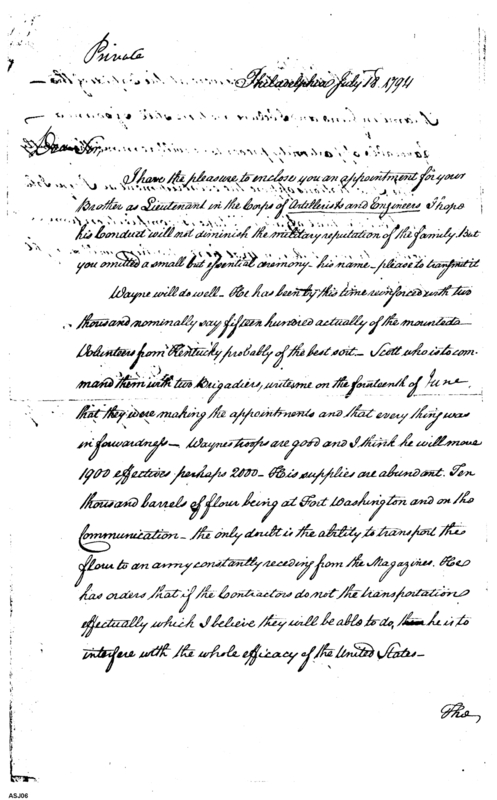 Private
Philadelphia July 18. 1794
Dear Sir,
I have the pleasure to enclose you an appointment for your
Brother as Lieutenant in the Corps of Artillerists and Engineers I hope
his Conduct will not diminish the military reputation of the family. But
you omitted a small but essential ceremony - his name - please to transmit it
Wayne will do well - He has been by this time reinforced with two
thousand nominally say fifteen hundred actually of the mounted
Volunteers from Kentucky probably of the best sort - Scott who is to com-
mand them with two Brigadiers, writes me on the fourteenth of June
that they were making the appointments and that every thing was
in forwardness - Waynes troops are good and I think he will move
1900 effectives perhaps 2000 - His supplies are abundant. Ten
thousand barrels of flour being at Fort Washington and on the
Communication - the only doubt is the ability to transport the
flour to an army constantly receding from the Magazines. He
has orders that if the Contractors do not the transportation
effectually which I believe they will be able to do, he is to
interfere with the whole efficacy of the United States -
The
ASJ06